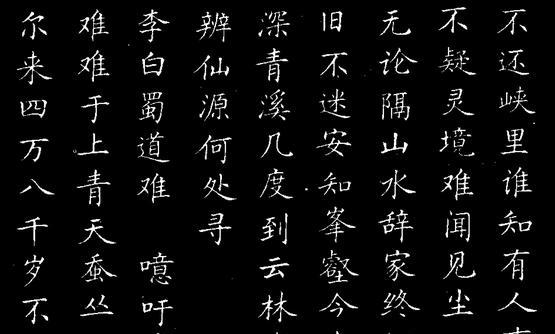 不还峡里谁知有人
不疑灵境难闻见尘
无论隔山水辞家终
旧不迷安知峯壑今
深青溪几度到云林
辨仙源何处寻
李白蜀道难　噫吁
难难于上青天蚕丛
尔来四万八千岁不